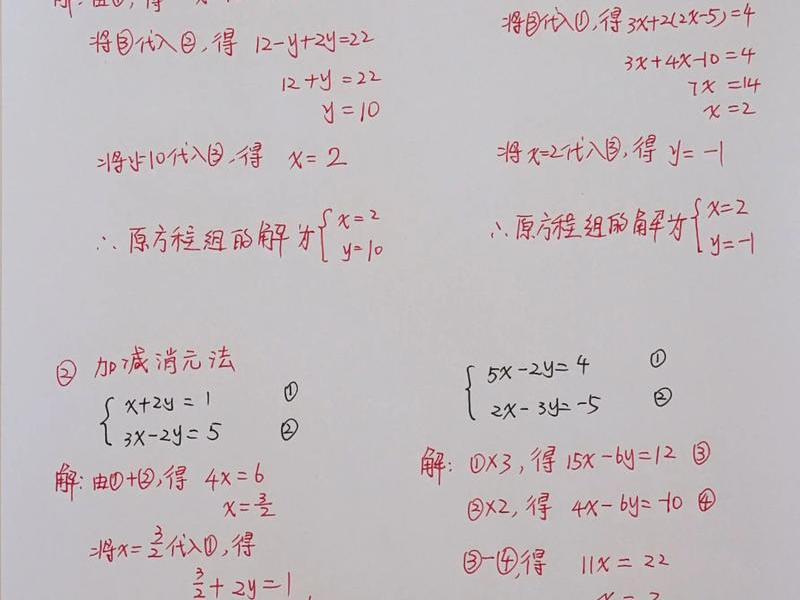 解:由①,得
将③代入②,得 12-y+2y=22
12+y=22
y=10
将y=10代入③,得 x=2
∴原方程组的解为{x=2
y=10
将③代入①,得 3x+2(2x-5)=4
3x+4x-10=4
7x=14
x=2
将x=2代入③,得 y=-1
∴原方程组的解为{x=2
y=-1
② 加减消元法
{x+2y=1 ①
3x-2y=5 ②
解:由①+②,得 4x=6
x=3/2
将x=3/2代入①,得
3/2+2y=1
{5x-2y=4 ①
2x-3y=-5 ②
解:①×3,得 15x-6y=12 ③
②×2,得 4x-6y=-10 ④
③-④,得 11x=22